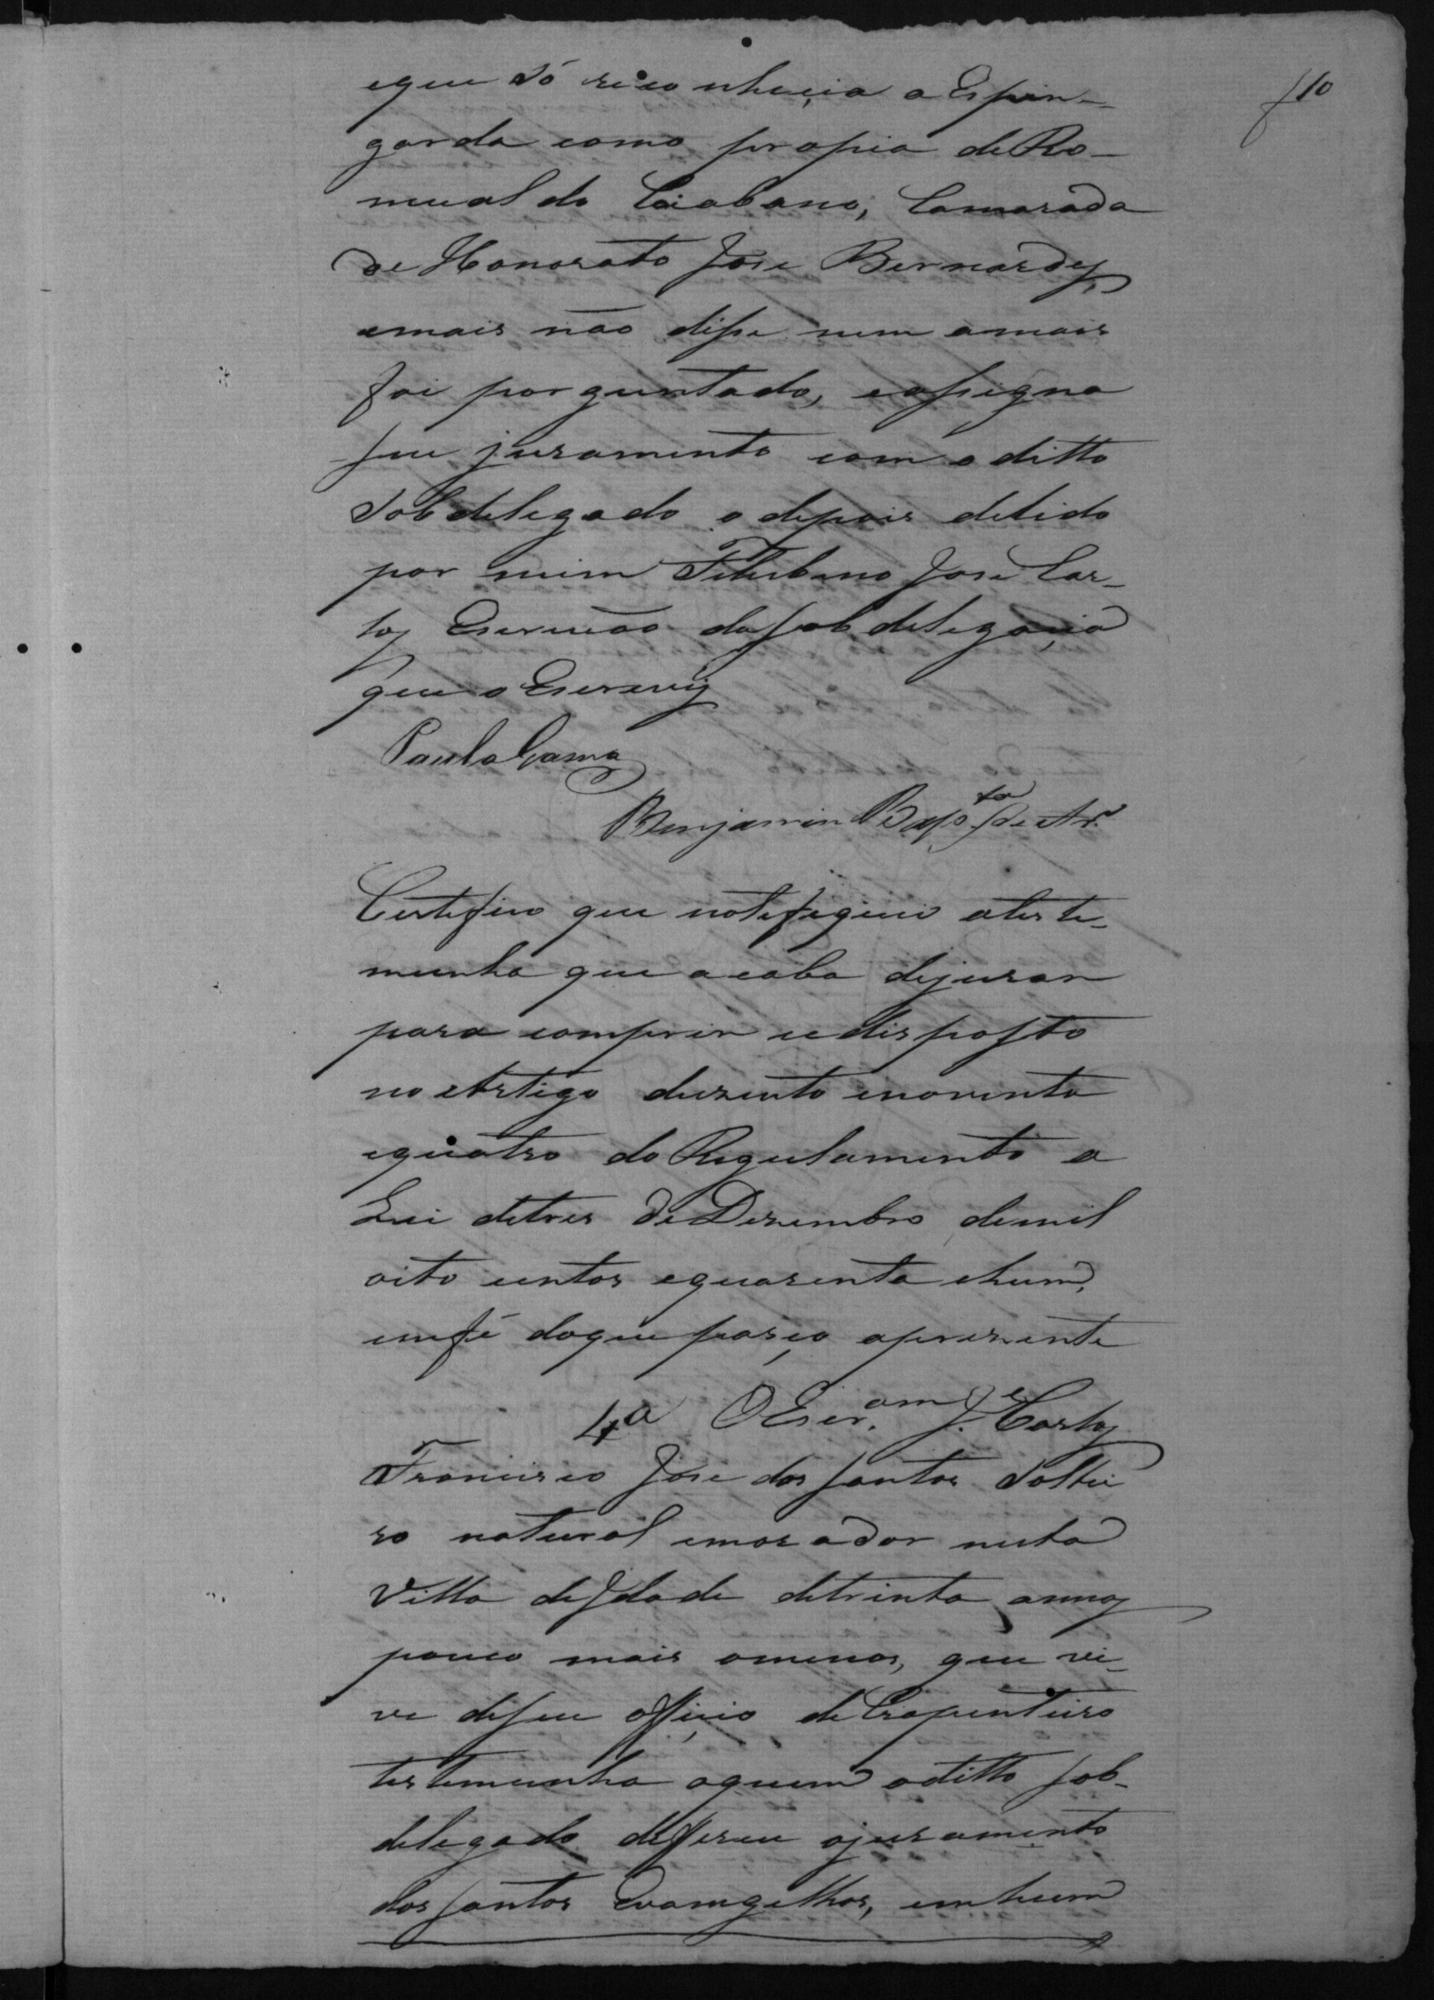 f 10
eque só reconheçia a Espin-
garda como propia de Ro-
mualdo Caiabano, Camarada
de Honorato Jose Bernardes,
emais não disse nem amais
foi porguntado, eassigna
seu juramento com o ditto
Sobdelegado o depois delido
por mim José Cas-
tos Escrivão dasobdelegaçia
que o Escrevij
Paula Gama
Benjamin Bap.ta de Ar.o
Certefico que notefiquei ateste-
munha que acaba dejurar
para comprir odisposto
no Artigo duzento enoventa
equatro do Regulamento a
Lei detres de Dezembro demil
oito centos equarenta ehum,
emfé doque passo apresente
4a O Escr.am J.e Castos
Francisco Jose dos santos Soltei
ro natural emorador nesta
Villa deJdade detrinta annos
pouco mais omenos, que vi-
ve deseu offiçio de Crapenteiro
testemunha aquem oditto sob-
delegado deffereu ojuramento
dos santos Evamgelhos, emhum